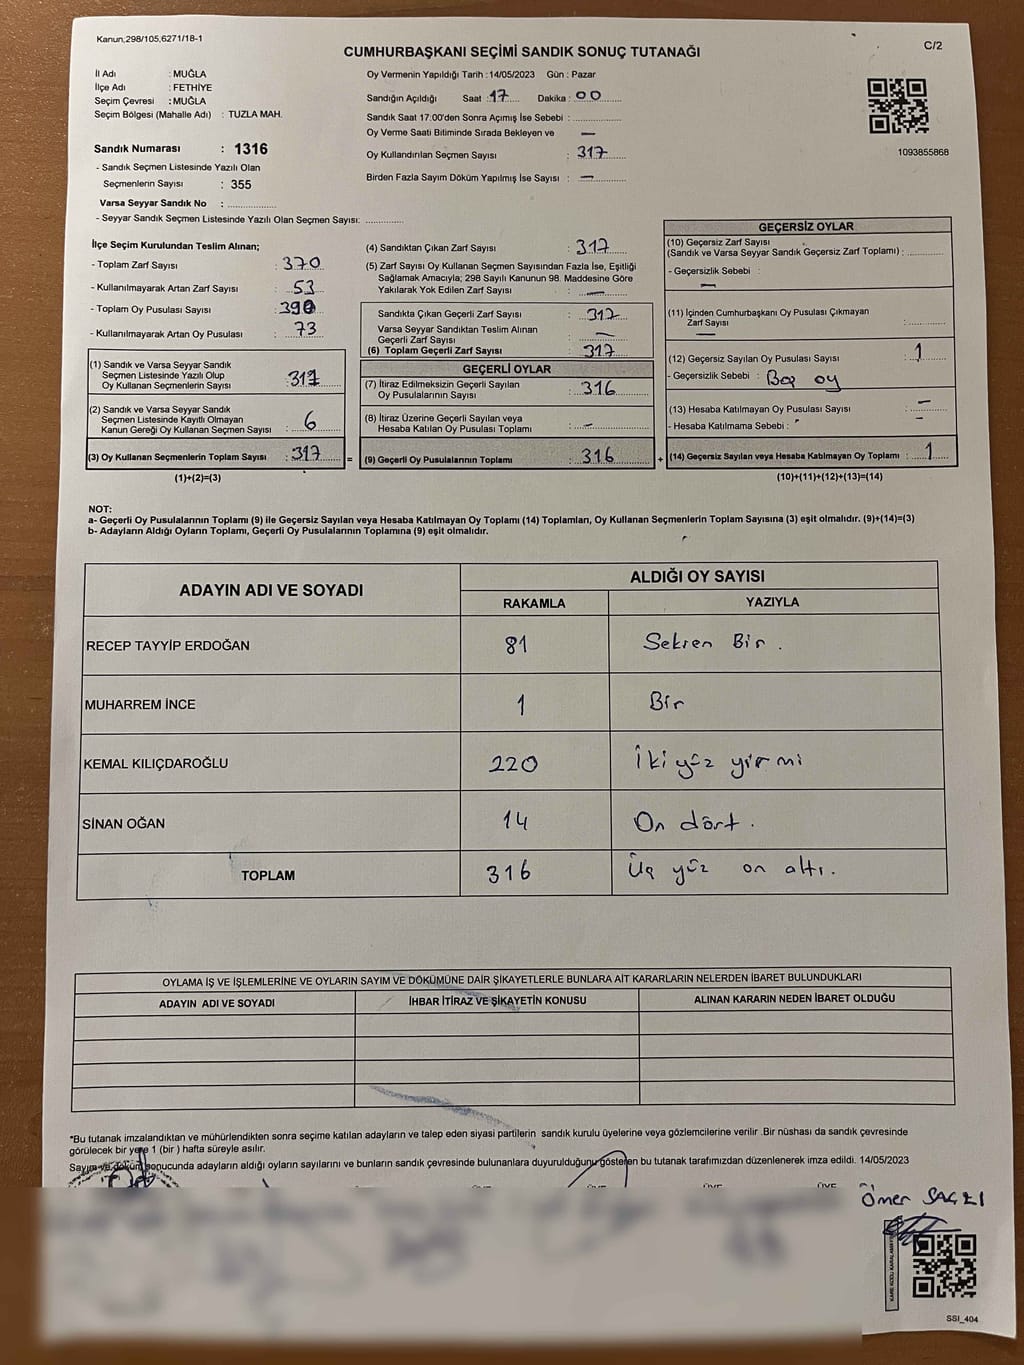 Kanun;298/105,6271/18-1
C/2
CUMHURBAŞKANI SEÇİMİ SANDIK SONUÇ TUTANAĞI
İl Adı : MUĞLA
İlçe Adı : FETHİYE
Seçim Çevresi : MUĞLA
Seçim Bölgesi (Mahalle Adı) : TUZLA MAH.
Sandık Numarası : 1316
- Sandık Seçmen Listesinde Yazılı Olan
Seçmenlerin Sayısı : 355
Varsa Seyyar Sandık No :
- Seyyar Sandık Seçmen Listesinde Yazılı Olan Seçmen Sayısı:
Oy Vermenin Yapıldığı Tarih :14/05/2023 Gün : Pazar
Sandığın Açıldığı Saat : 17 Dakika : 00
Sandık Saat 17:00'den Sonra Açımış İse Sebebi :
Oy Verme Saati Bitiminde Sırada Bekleyen ve —
Oy Kullandırılan Seçmen Sayısı : 317
Birden Fazla Sayım Döküm Yapılmış İse Sayısı : —
1093855868
İlçe Seçim Kurulundan Teslim Alınan;
- Toplam Zarf Sayısı : 370
- Kullanılmayarak Artan Zarf Sayısı : 53
- Toplam Oy Pusulası Sayısı : 390
- Kullanılmayarak Artan Oy Pusulası : 73
(1) Sandık ve Varsa Seyyar Sandık
Seçmen Listesinde Yazılı Olup
Oy Kullanan Seçmenlerin Sayısı : 317
(2) Sandık ve Varsa Seyyar Sandık
Seçmen Listesinde Kayıtlı Olmayan
Kanun Gereği Oy Kullanan Seçmen Sayısı : 6
(3) Oy Kullanan Seçmenlerin Toplam Sayısı : 317
(1)+(2)=(3)
(4) Sandıktan Çıkan Zarf Sayısı : 317
(5) Zarf Sayısı Oy Kullanan Seçmen Sayısından Fazla İse, Eşitliği
Sağlamak Amacıyla; 298 Sayılı Kanunun 98. Maddesine Göre
Yakılarak Yok Edilen Zarf Sayısı : —
Sandıkta Çıkan Geçerli Zarf Sayısı : 317
Varsa Seyyar Sandıktan Teslim Alınan
Geçerli Zarf Sayısı : —
(6) Toplam Geçerli Zarf Sayısı : 317
GEÇERLİ OYLAR
(7) İtiraz Edilmeksizin Geçerli Sayılan
Oy Pusulalarının Sayısı : 316
(8) İtiraz Üzerine Geçerli Sayılan veya
Hesaba Katılan Oy Pusulası Toplamı : -
= (9) Geçerli Oy Pusulalarının Toplamı : 316
GEÇERSİZ OYLAR
(10) Geçersiz Zarf Sayısı
(Sandık ve Varsa Seyyar Sandık Geçersiz Zarf Toplamı) :
- Geçersizlik Sebebi :
—
(11) İçinden Cumhurbaşkanı Oy Pusulası Çıkmayan
Zarf Sayısı :
—
(12) Geçersiz Sayılan Oy Pusulası Sayısı : 1
- Geçersizlik Sebebi : Boş oy
(13) Hesaba Katılmayan Oy Pusulası Sayısı : —
- Hesaba Katılmama Sebebi : -
+ (14) Geçersiz Sayılan veya Hesaba Katılmayan Oy Toplamı : 1
(10)+(11)+(12)+(13)=(14)
NOT:
a- Geçerli Oy Pusulalarının Toplamı (9) ile Geçersiz Sayılan veya Hesaba Katılmayan Oy Toplamı (14) Toplamları, Oy Kullanan Seçmenlerin Toplam Sayısına (3) eşit olmalıdır. (9)+(14)=(3)
b- Adayların Aldığı Oyların Toplamı, Geçerli Oy Pusulalarının Toplamına (9) eşit olmalıdır.
ADAYIN ADI VE SOYADI
ALDIĞI OY SAYISI
RAKAMLA YAZIYLA
RECEP TAYYİP ERDOĞAN 81 Seksen Bir.
MUHARREM İNCE 1 Bir
KEMAL KILIÇDAROĞLU 220 İki yüz yirmi
SİNAN OĞAN 14 On dört.
TOPLAM 316 Üç yüz on altı.
OYLAMA İŞ VE İŞLEMLERİNE VE OYLARIN SAYIM VE DÖKÜMÜNE DAİR ŞİKAYETLERLE BUNLARA AİT KARARLARIN NELERDEN İBARET BULUNDUKLARI
ADAYIN ADI VE SOYADI İHBAR İTİRAZ VE ŞİKAYETİN KONUSU ALINAN KARARIN NEDEN İBARET OLDUĞU
*Bu tutanak imzalandıktan ve mühürlendikten sonra seçime katılan adayların ve talep eden siyasi partilerin sandık kurulu üyelerine veya gözlemcilerine verilir .Bir nüshası da sandık çevresinde
görülecek bir yere 1 (bir ) hafta süreyle asılır.
Sayım ve döküm sonucunda adayların aldığı oyların sayılarını ve bunların sandık çevresinde bulunanlara duyurulduğunu gösteren bu tutanak tarafımızdan düzenlenerek imza edildi. 14/05/2023
ÜYE ÜYE ÜYE ÜYE
Ömer
SSI_404